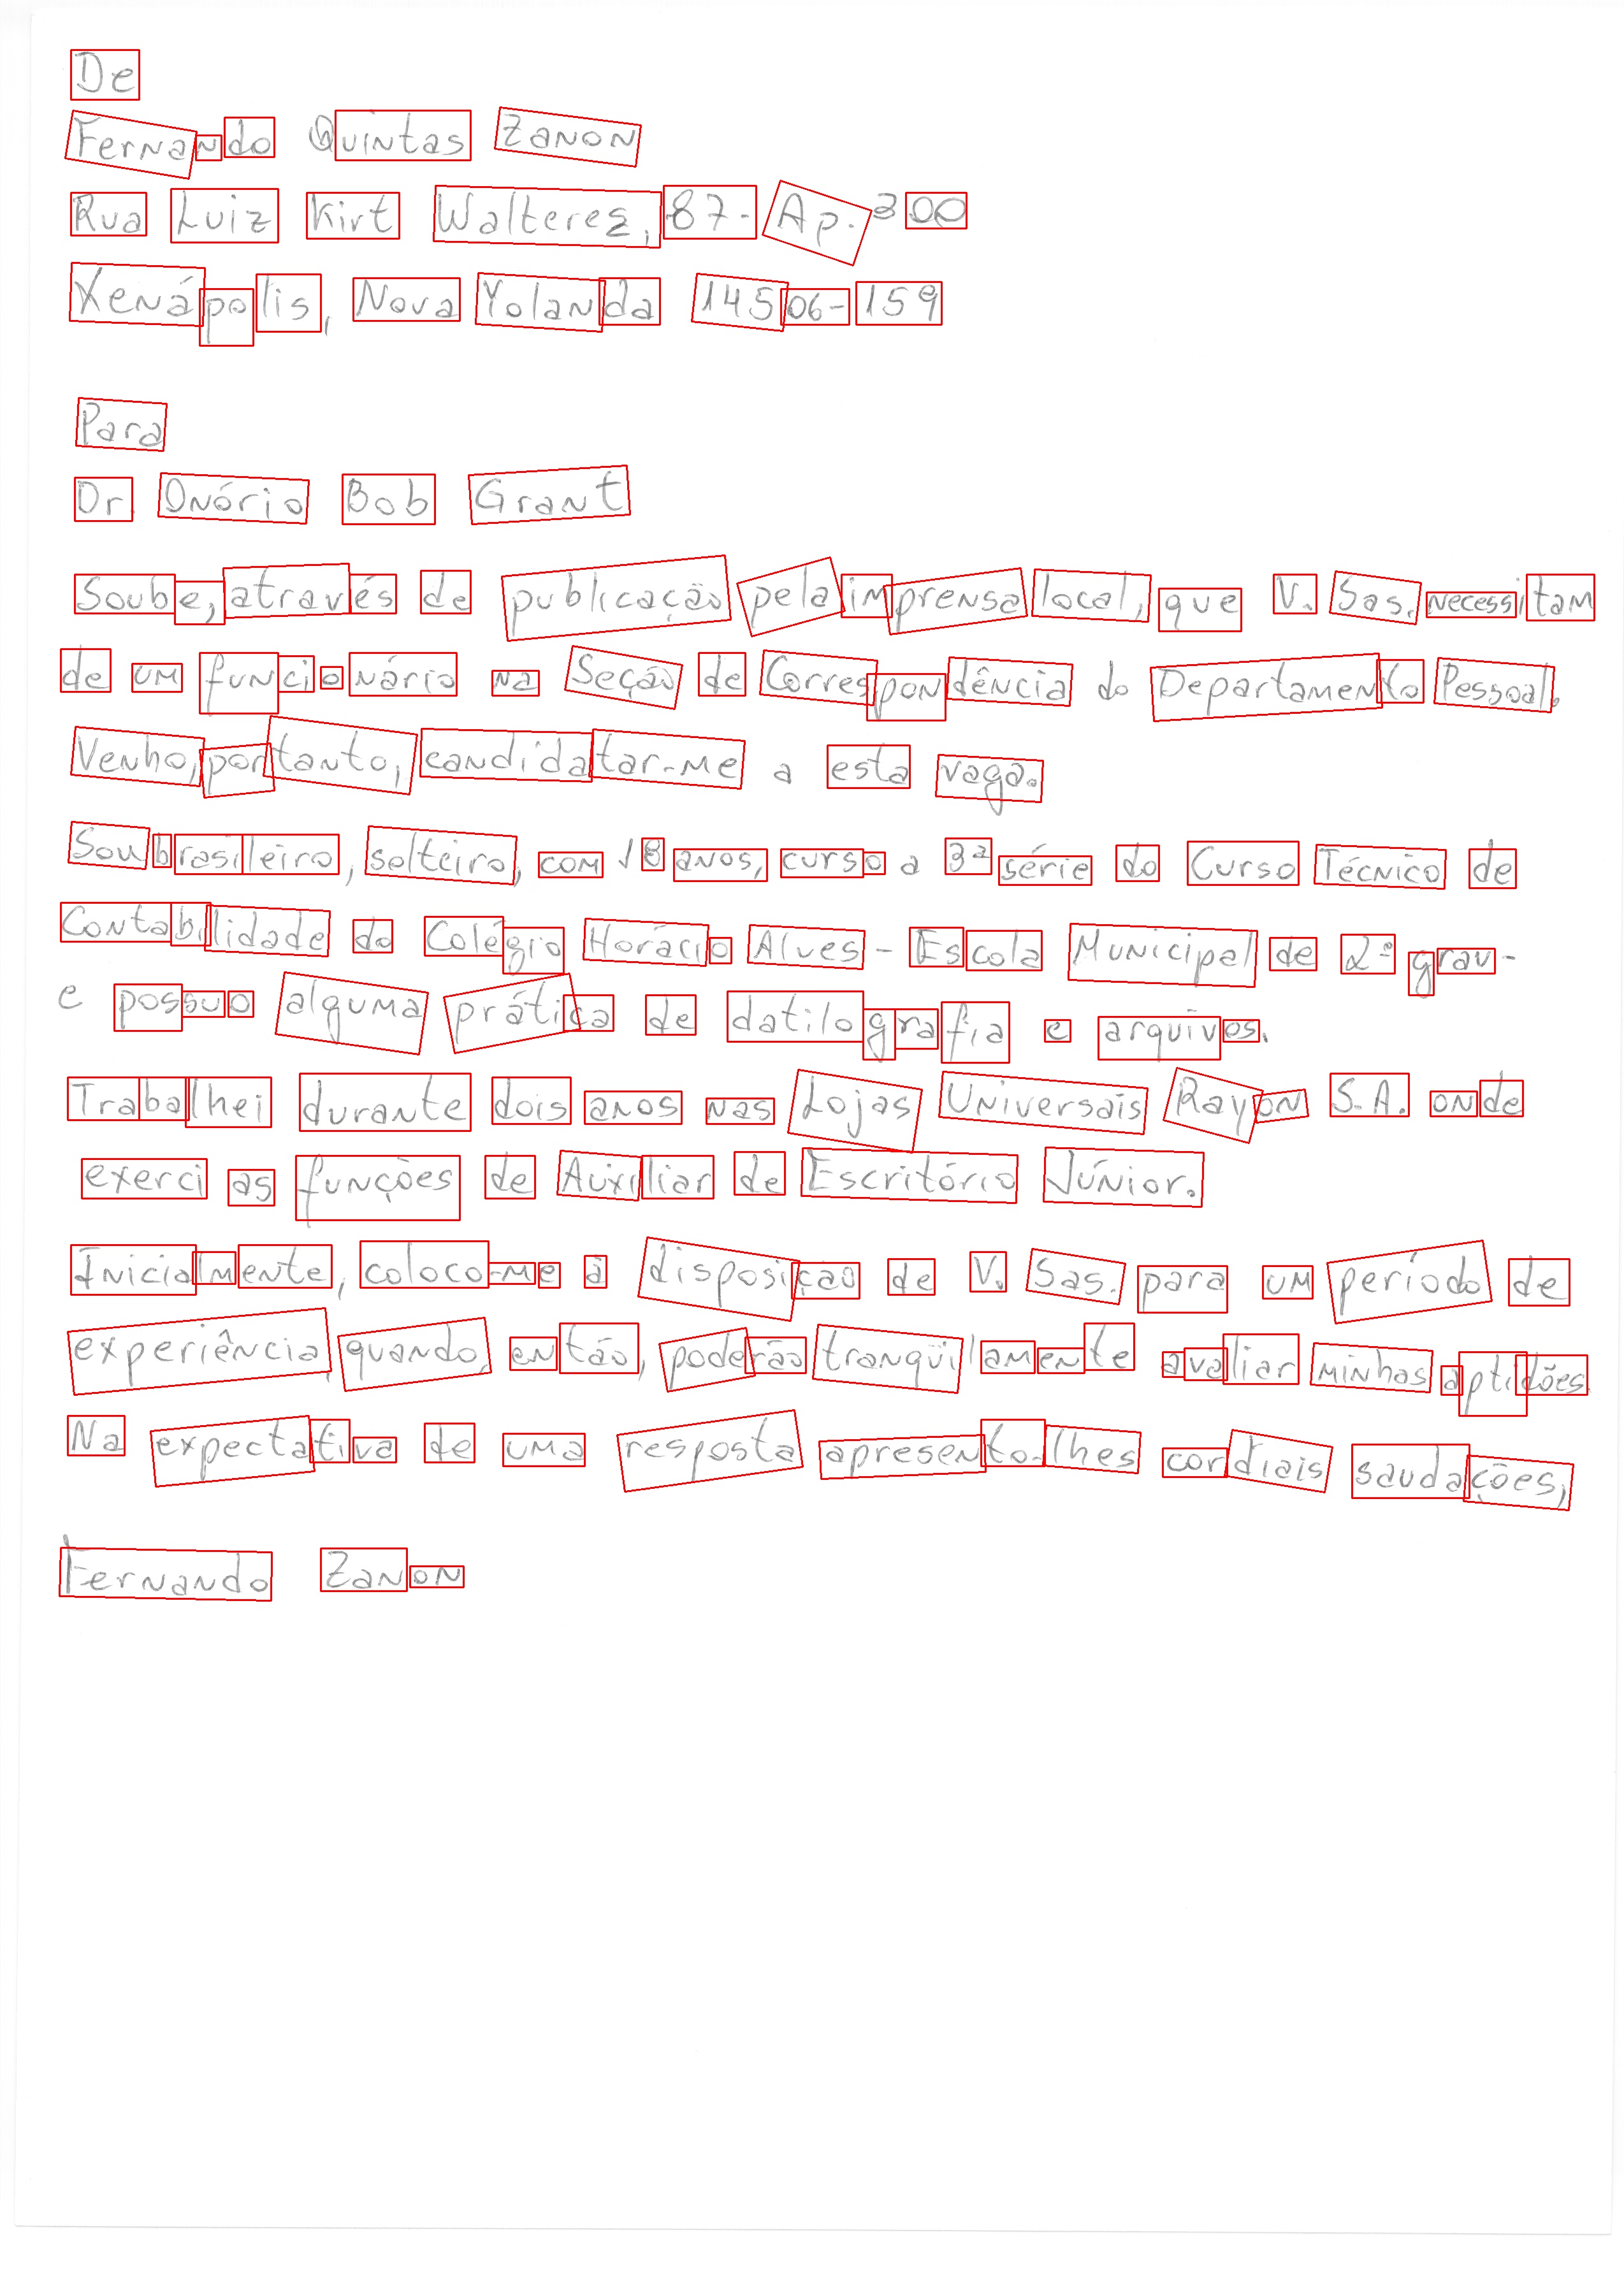 De
Fernando Quintas Zanon
Rua Luiz Kirt Walteres, 87- Ap. 300
Xenápolis, Nova Yolanda 14506-159
Para
Dr. Onório Bob Grant
Soube, através de publicação pela imprensa local, que V. Sas. necessitam
de um funcionário na Seção de Correspondência do Departamento Pessoal.
Venho, portanto, candidatar-me a esta vaga.
Sou brasileiro, solteiro, com 18 anos, curso a 3ª série do Curso Técnico de
Contabilidade do Colégio Horácio Alves - Escola Municipal de 2º grau -
e possuo alguma prática de datilografia e arquivos.
Trabalhei durante dois anos nas Lojas Universais Rayon S.A. onde
exerci as funções de Auxiliar de Escritório Júnior.
Inicialmente, coloco-me à disposição de V. Sas. para um período de
experiência, quando, então, poderão tranqüilamente avaliar minhas aptidões.
Na expectativa de uma resposta apresento-lhes cordiais saudações,
Fernando Zanon